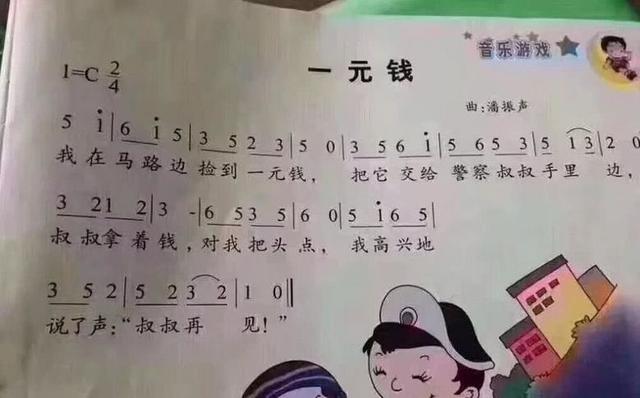 音乐游戏
1=C 2/4
一元钱
曲:潘振声
5 i|6 i 5|3 5 2 3|5 0|3 5 6 i|5 6 5 3|5 1 3|2 0
我在马路边捡到一元钱， 把它交给警察叔叔手里边，
3 2 1 2|3 -|6 5 3 5|6 0|5 i 6 5|
叔叔拿着钱，对我把头点， 我高兴地
3 5 2|5 2 3 2|1 0‖
说了声：“叔叔再见！”